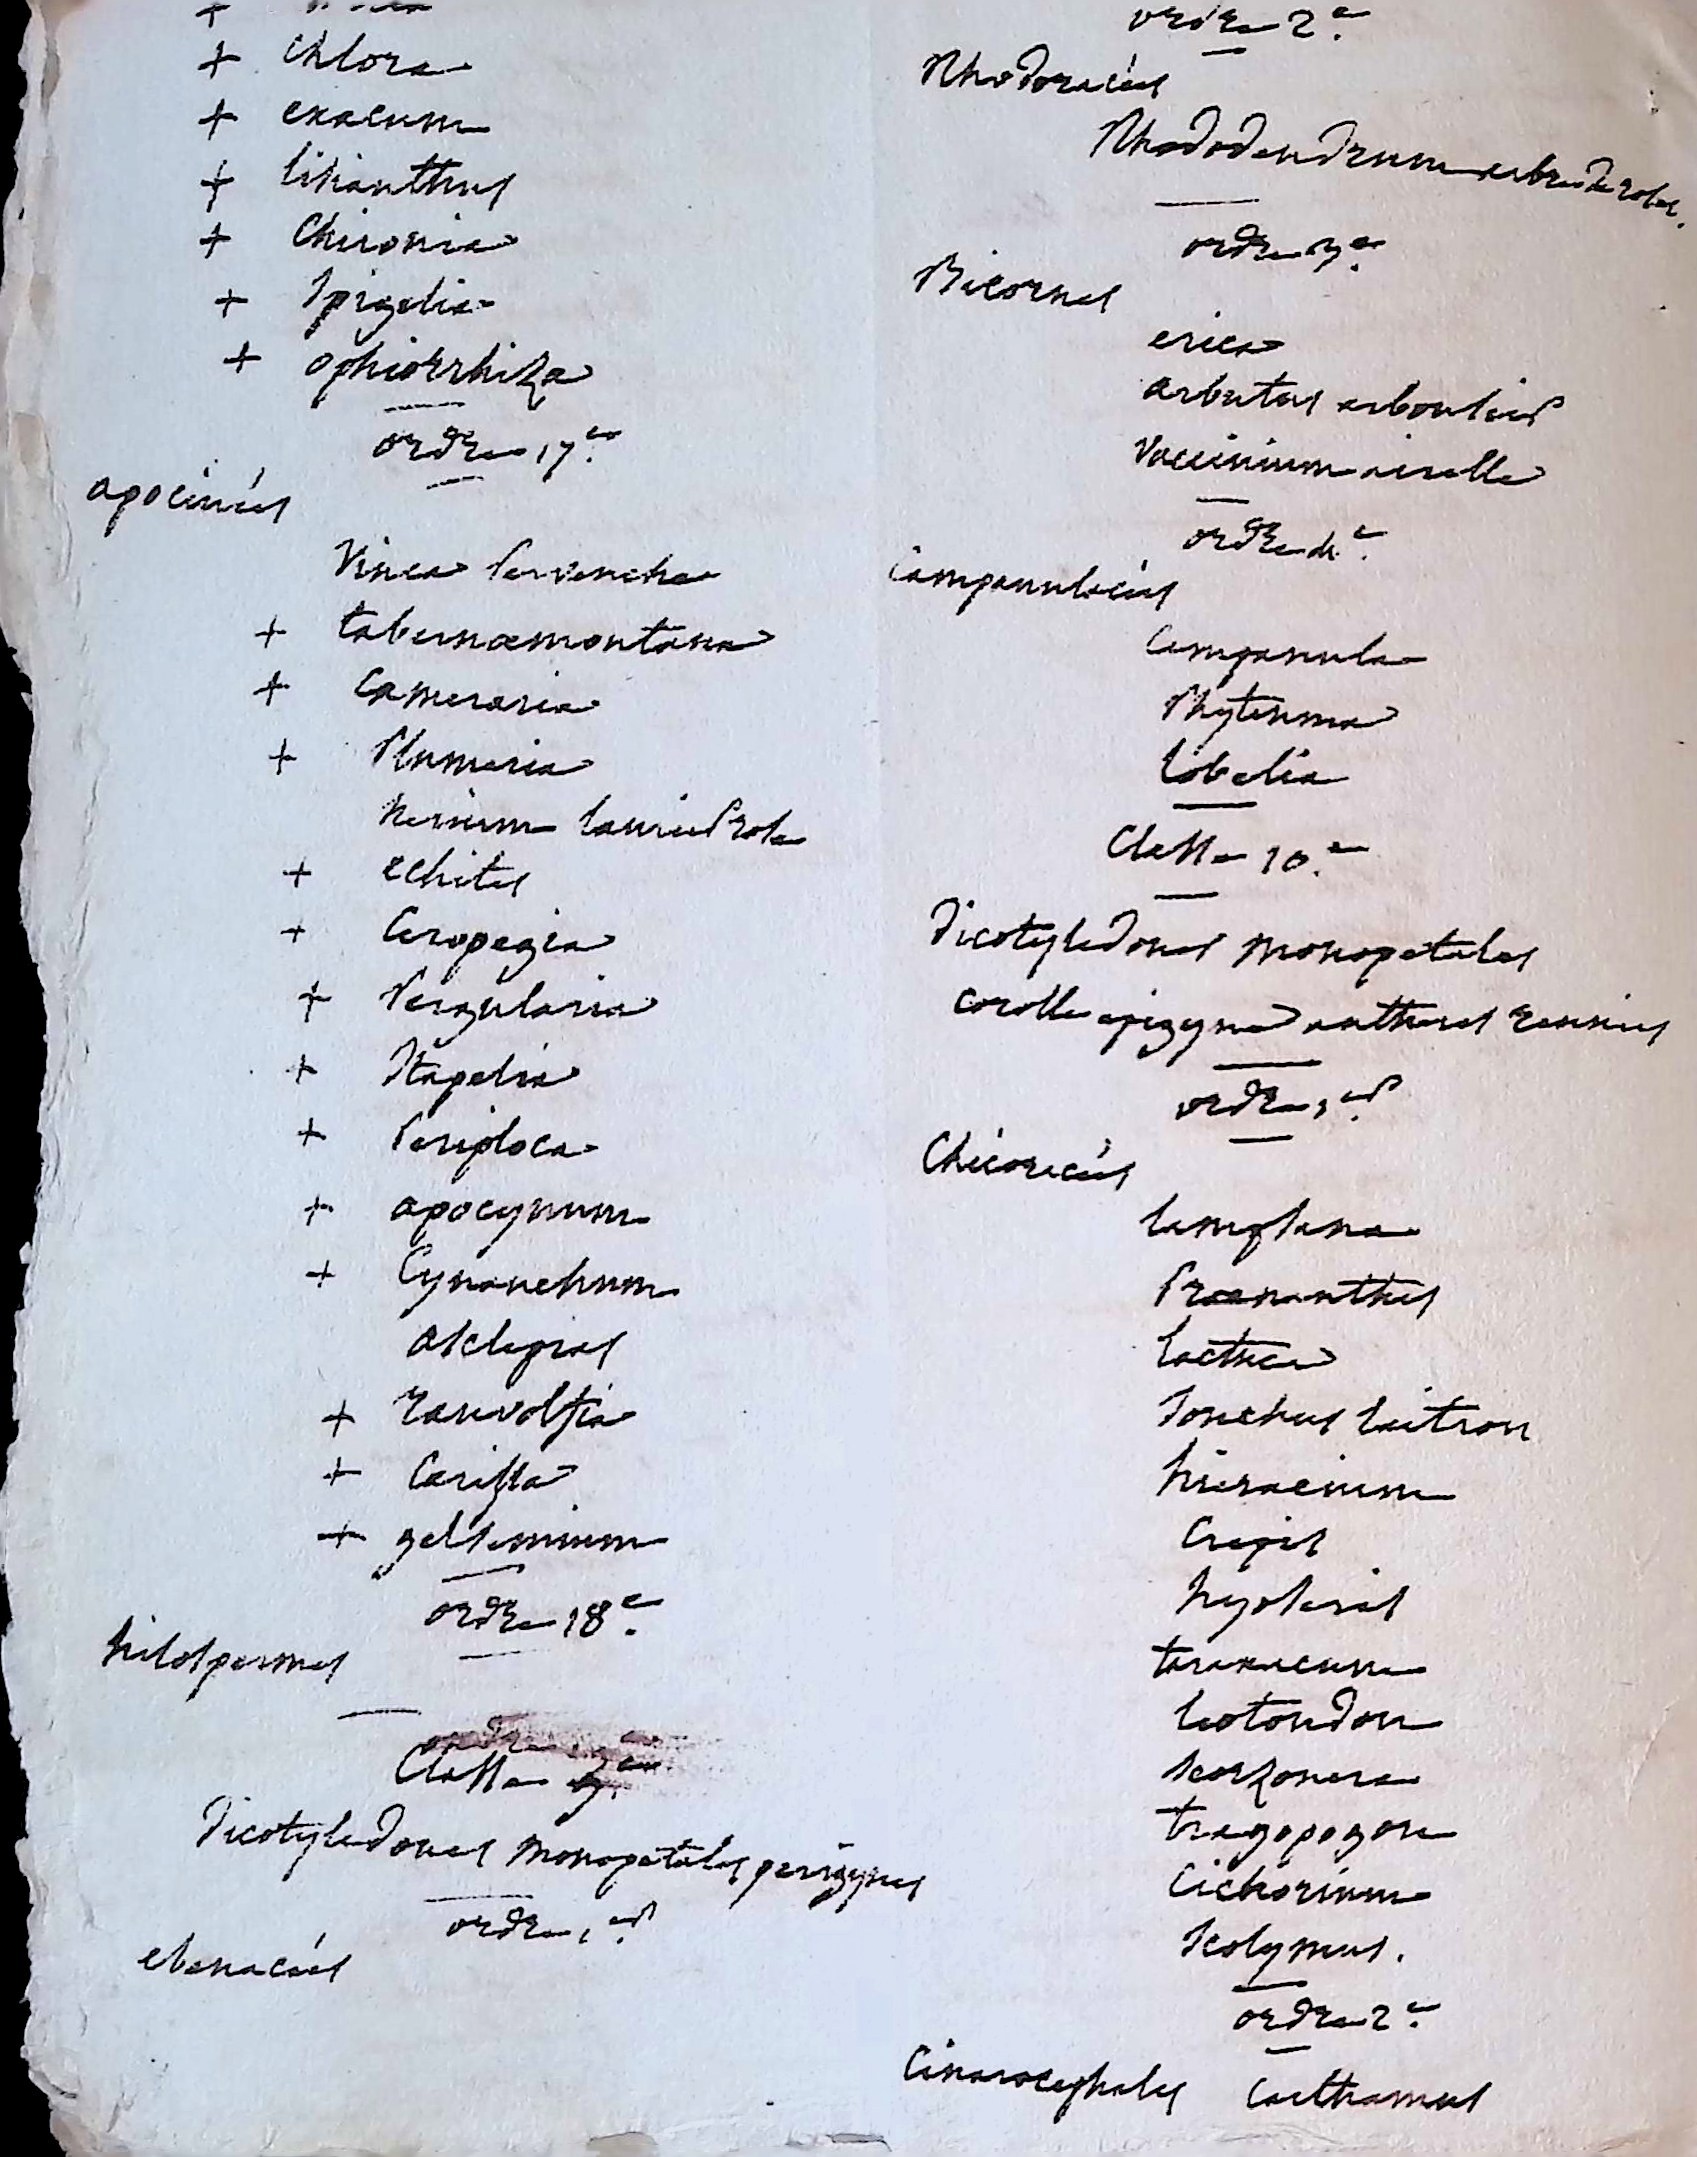 + chlora
+ exacum
+ lisianthus
+ Chironia
+ Spigelia
+ ophiorrhiza
ordre 17e.
apocinées
Vinca Pervenche
+ tabernæmontana
+ Cameraria
+ Plumeria
Nerium laurier rose
+ echites
+ Ceropegia
+ Pergularia
+ Stapelia
+ Periploca
+ apocynum
+ Cynanchum
asclepias
+ rauvolfia
+ Carissa
+ gelsemium
ordre 18e.
hilospermes
Classe 9e.
Dicotyledones monopetales perigynes
ordre 1er.
ebenacées
ordre 2e.
Rhodoracées
Rhododendrum arbre de rose.
ordre 3e.
Bicornes
erica
arbutus arbousier
Vaccinium airelle
ordre 4e.
Campanulacées
Campanula
Phyteuma
lobelia
Classe 10e.
Dicotyledones monopetales
corolle epigyne antheres reunies
ordre 1er.
Chicoracées
lampsana
Praenanthes
lactuca
Sonchus laitron
hieracium
Crepis
hyoseris
taraxacum
leotondon
scorzonera
tragopogon
Cichorium
Scolymus.
ordre 2e.
Cinarocephales Carthamus